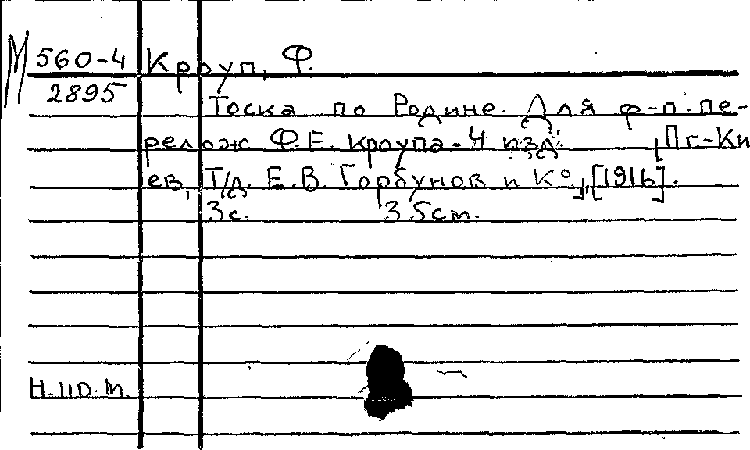 М 560-4 Кроуп, Ф.
2895
Тоска по Родине. Для ф-п. пе-
релож Ф.Е. Кроупа. 4 изд. [Пг-Ки
ев, Т/д. Е.В. Горбунов и К°], [1916].
3 с. 35 см.
Н.по.т.